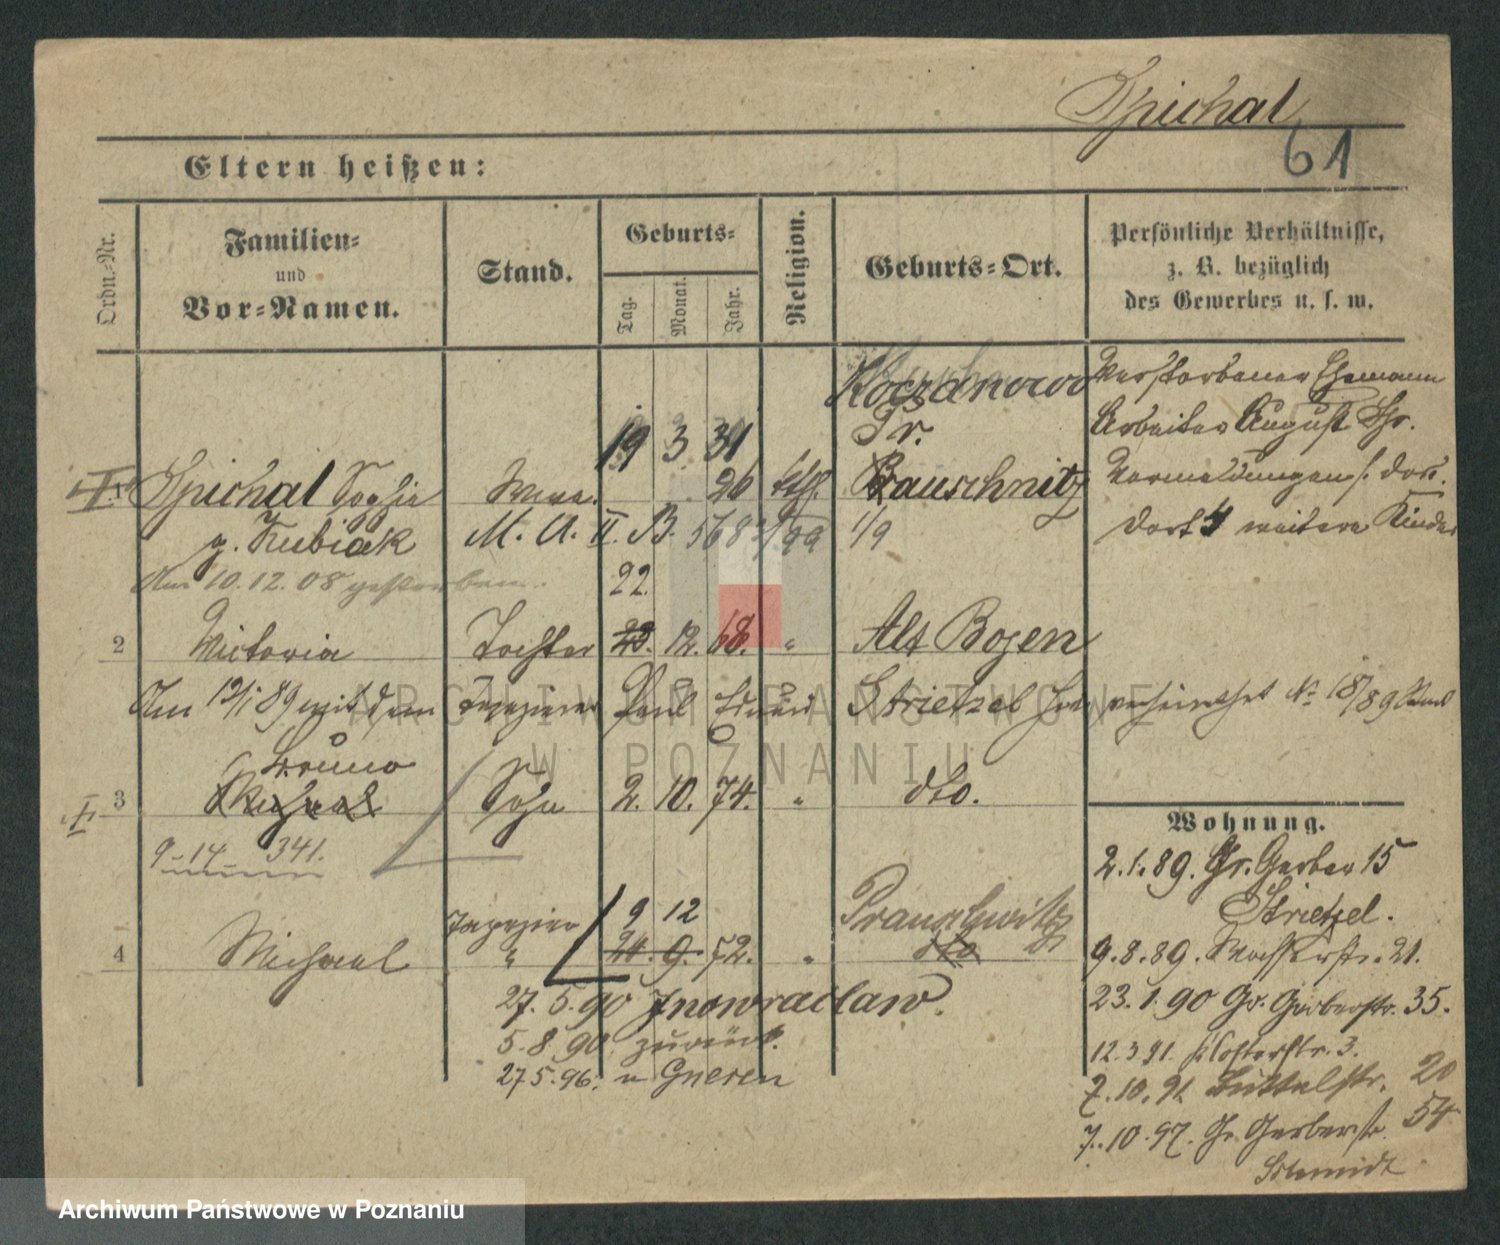 Spichal
61
Eltern heißen:
Ordn.-Nr.
Familien-
und
Vor-Namen.
Stand.
Geburts-
Tag.
Monat.
Jahr.
Religion.
Geburts-Ort.
Persönliche Verhältnisse,
z. B. bezüglich
des Gewerbes u. s. w.
Koczanowo
Pr.
Verstorbener Ehemann
Arbeiter August Sp.
19 3 31
1 Spichal Sophie Wwe. 26 kth. Brauschnitz
g. Kubiak M. A. II. B. 568 99 1/9
dort 4 weitere Kinder
Am 10.12.08 gestorben.
22.
2 Victoria Tochter 23. 12. 68. " Alt Bozen
Am 12/1 89 mit dem Tapezierer Paul Strietzel verheirathet No 18/89
Bruno
3 Michael Sohn 2. 10. 74. " dto.
9-14 341.
Tapezier 9 12 Prauschwitz
4 Michael " 24. 9. 72. " dto
27.5.90 Inowraclaw.
5.8.90 zurück.
27.5.96. n Gnesen
Wohnung.
2.1.89. Gr. Gerber 15
Strietzel.
9.8.89. 21.
23.1.90 Gr. Gerberstr. 35.
12.3.91. Klosterstr. 3.
7.10.91. Büttelstr. 20
7.10.97. Gr. Gerberstr. 54
Schmidt
ARCHIWUM PAŃSTWOWE
W POZNANIU
Archiwum Państwowe w Poznaniu